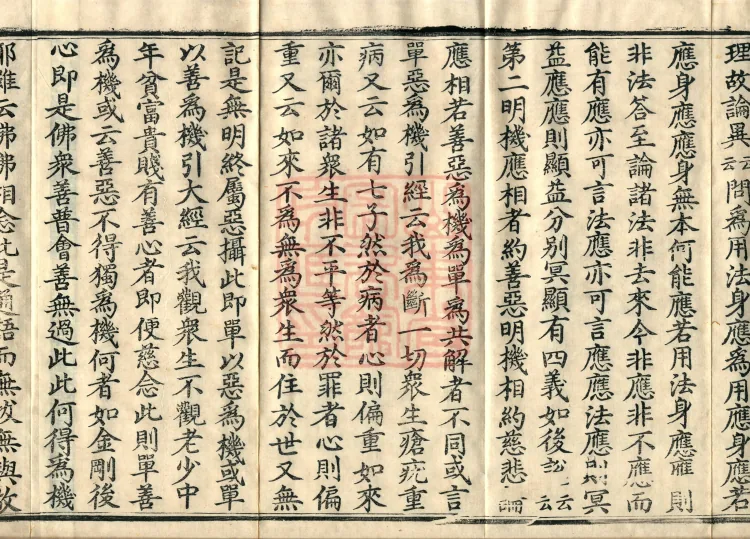 理故論異云云問為用法身應為用應身應若
應身應應身無本何能應若用法身應應則
非法答至論諸法非去來今非應非不應而
能有應亦可言法應亦可言應應法應則冥
益應應則顯益分別冥顯有四義如後説云云
第二明機應相者約善惡明機相約慈悲論
應相若善惡為機為單為共解者不同或言
單惡為機引經云我為斷一切衆生瘡疣重
病又云如有七子然於病者心則偏重如來
亦爾於諸衆生非不平等然於罪者心則偏
重又云如來不為無為衆生而住於世又無
記是無明終屬惡攝此即單以惡為機或單
以善為機引大經云我觀衆生不觀老少中
年貧富貴賤有善心者即便慈念此則單善
為機或云善惡不得獨為機何者如金剛後
心即是佛衆善普會善無過此此何得為機
耶雖云佛佛相念此是通語而無拔無與故